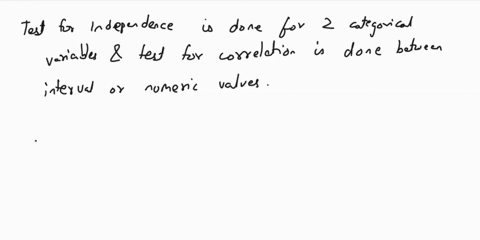 Test for Independence is done for 2 categorical
variables & test for correlation is done between
interval or numeric values.